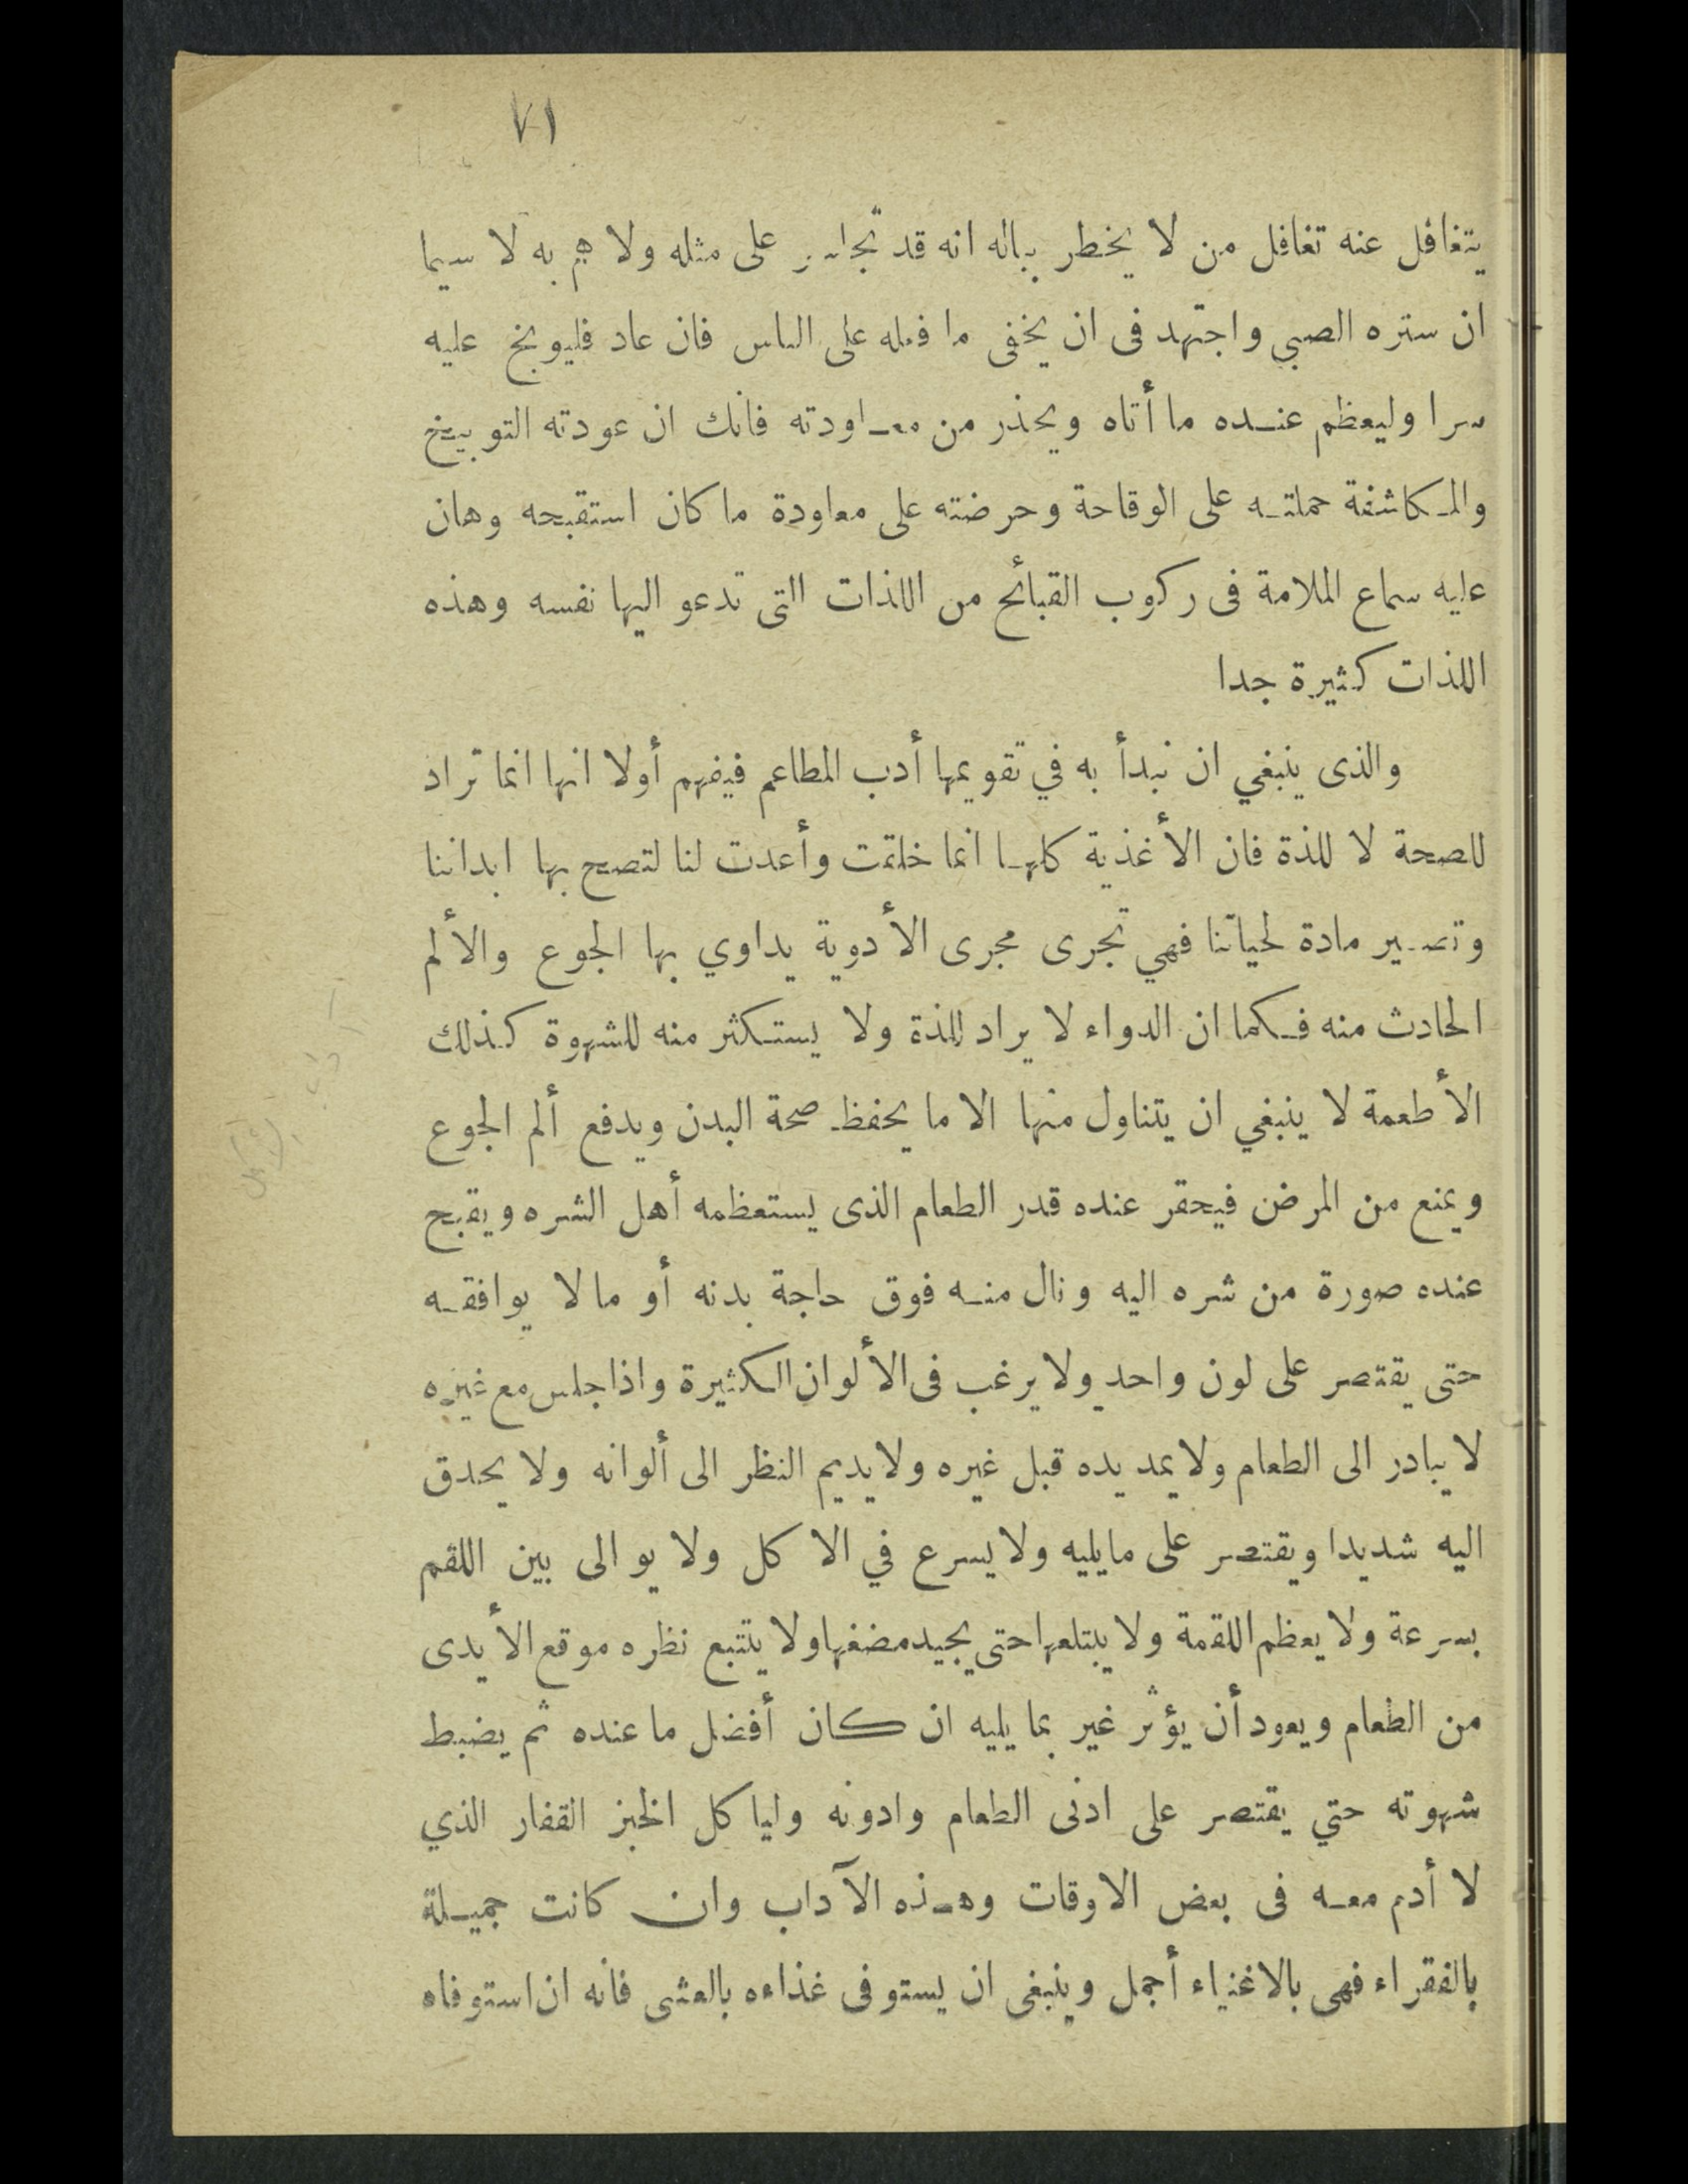 ٧١
يتغافل عنه تغافل من لا يخطر بباله انه قد تجاسر على مثله ولا هم به لا سيما
ان ستره الصبي واجتهد فى ان يخفى ما فعله على الناس فان عاد فليوبخ عليه
سرا وليعظم عنده ما أتاه ويحذر من معاودته فانك ان عودته التوبيخ
والمكاشفة حملته على الوقاحة وحرضته على معاودة ما كان استقبحه وهان
عليه سماع الملامة فى ركوب القبائح من اللذات التى تدعو اليها نفسه وهذه
اللذات كثيرة جدا
والذى ينبغي ان نبدأ به في تقويمها أدب المطاعم فيفهم أولا انها انما تراد
للصحة لا للذة فان الأغذية كلها انما خلقت وأعدت لنا لتصح بها ابداننا
وتصير مادة لحياتنا فهي تجرى مجرى الأدوية يداوي بها الجوع والألم
الحادث منه فكما ان الدواء لا يراد للذة ولا يستكثر منه للشهوة كذلك
الأطعمة لا ينبغي ان يتناول منها الا ما يحفظ صحة البدن ويدفع ألم الجوع
ويمنع من المرض فيحقر عنده قدر الطعام الذى يستعظمه أهل الشره ويقبح
عنده صورة من شره اليه ونال منه فوق حاجة بدنه أو مالا يوافقه
حتى يقتصر على لون واحد ولا يرغب فى الألوان الكثيرة واذا جلس مع غيره
لا يبادر الى الطعام ولا يمد يده قبل غيره ولا يديم النظر الى ألوانه ولا يحدق
اليه شديدا ويقتصر على مايليه ولا يسرع في الاكل ولا يوالى بين اللقم
بسرعة ولا يعظم اللقمة ولا يبتلعها حتى يجيد مضغها ولا يتتبع نظره موقع الأيدى
من الطعام ويعود أن يؤثر غير بما يليه ان كان أفضل ما عنده ثم يضبط
شهوته حتي يقتصر على ادنى الطعام وادونه وليأكل الخبز القفار الذي
لا أدم معه فى بعض الاوقات وهذه الآداب وان كانت جميلة
بالفقراء فهى بالاغنياء أجمل وينبغى ان يستوفى غذاءه بالعشى فانه ان استوفاه